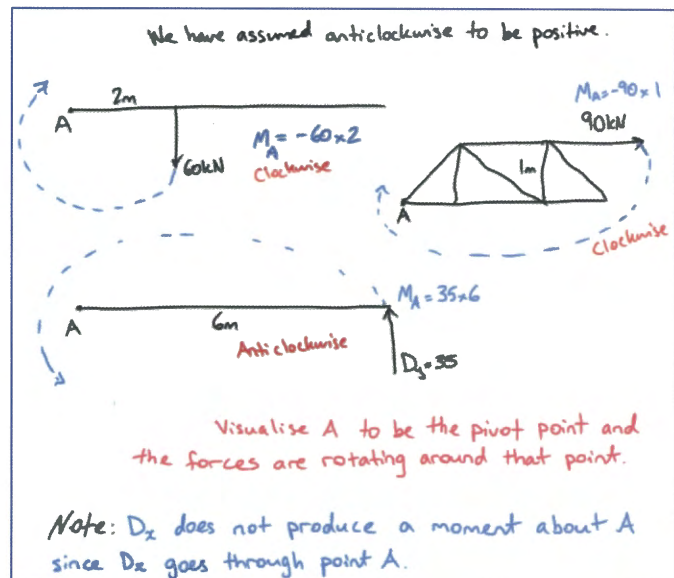 We have assumed anticlockwise to be positive.
2m
A
60kN
M_A = -60×2
Clockwise
M_A=-90×1
90kN
1m
A
Clockwise
A
6m
Anticlockwise
M_A = 35×6
D_y=35
Visualise A to be the pivot point and
the forces are rotating around that point.
Note: Dx does not produce a moment about A
since Dx goes through point A.